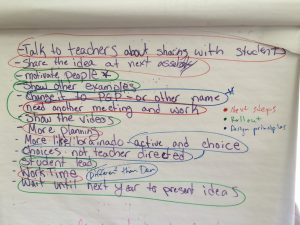 -Talk to teachers about sharing with students
-Share the idea at next assembly
-motivate people *
-Show other examples
-Change it to PGP- or other name
-Need another meeting and work
-Show the videos
-More planning
-More like brainado - active and choice
-Choices - not teacher directed
-Student lead
-Work time
Different than Den
-Wait until next year to present ideas
• Next steps
• Rollout
• Design principles